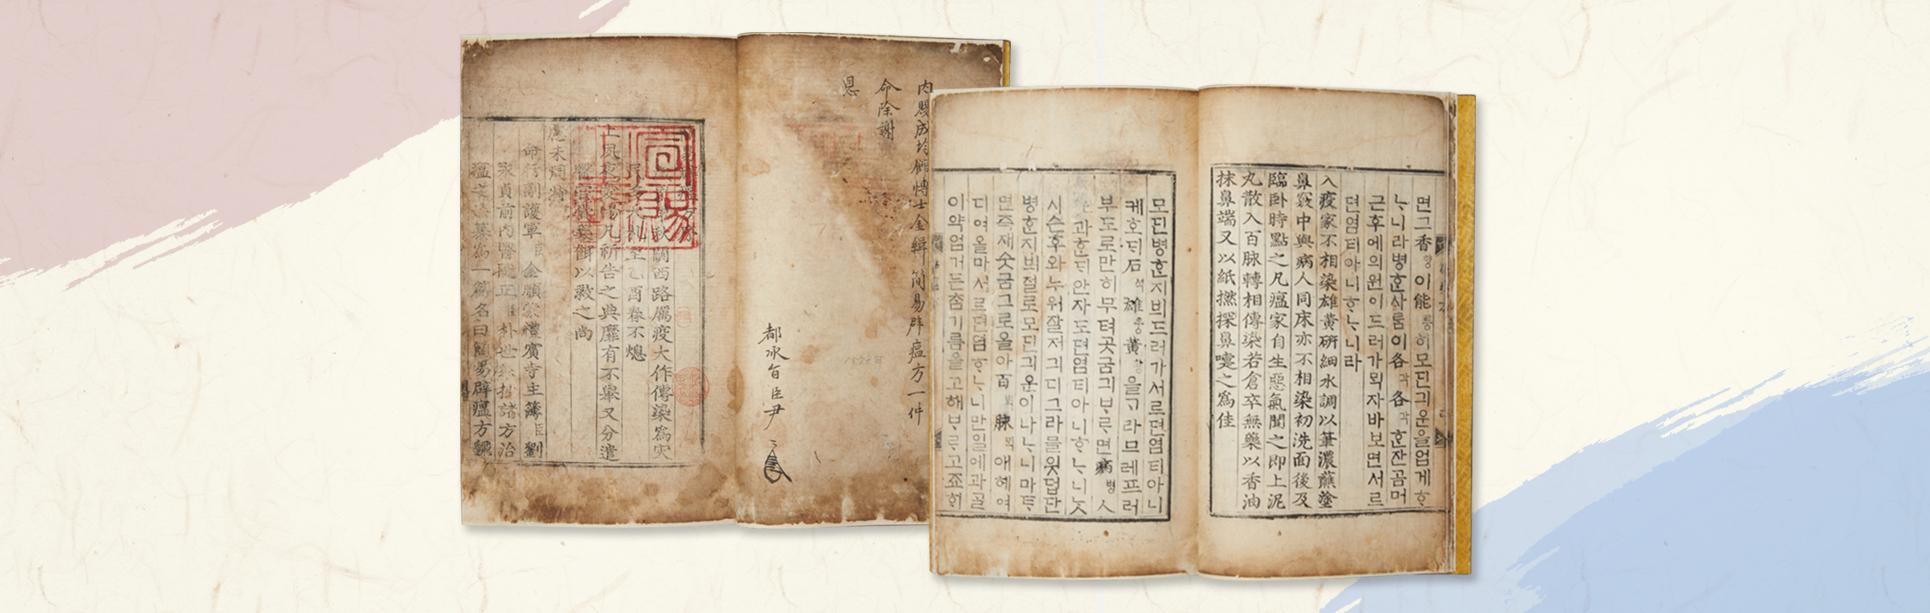 內賜成均館博士金緝簡易辟瘟方一件
命除謝
恩
都承旨臣尹
秋關西路厲疫大作傳染爲灾
至乙酉春不熄
上夙夜憂惕凡祈告之典靡有不擧又分遣
藥餌以救之尚
慮未周特
命行副護軍臣金順蒙禮賓寺主簿臣劉
永貞前內醫院正臣朴世擧抄諸方治
瘟之法纂爲一篇名曰簡易辟瘟方飜
면그香향이能능히모딘긔운을업게ᄒᆞ
ᄂᆞ니라병ᄒᆞᆫ사ᄅᆞᆷ이各각各각ᄒᆞᆫ잔곰머
근後에의원이드러가ᄆᆡᆨ자바보면서르
뎐염티아니ᄒᆞᄂᆞ니라
入疫家不相染雄黃硏細水調以筆濃蘸塗
鼻竅中與病人同床亦不相染初洗面後及
臨臥時點之凡瘟家自生惡氣聞之即上泥
丸散入百脉轉相傳染若倉卒無藥以香油
抹鼻端又以紙撚探鼻嚔之爲佳
모딘병ᄒᆞᆫ지븨드러가서르뎐염티아니
케호ᄃᆡ石셕雄웅黃황을ᄀᆞ라므레프러
부도로만히무텨곳굼긔ᄇᆞᄅᆞ면病병人
과ᄒᆞᆫᄃᆡ안자도뎐염티아니ᄒᆞᄂᆞ니ᄂᆞᆺ
시슨후와누워잘저긔디그라믈읫덥단
병ᄒᆞᆫ지븨절로모딘긔운이나ᄂᆞ니마ᄐᆞ
면즉재숫굼그로올아百ᄇᆡᆨ脉ᄆᆡᆨ애헤여
디여올마서르뎐염ᄒᆞᄂᆞ니만일에과ᄀᆞᆯ
이약업거든ᄎᆞᆷ기름을고해ᄇᆞᄅᆞ고죠ᄒᆡ